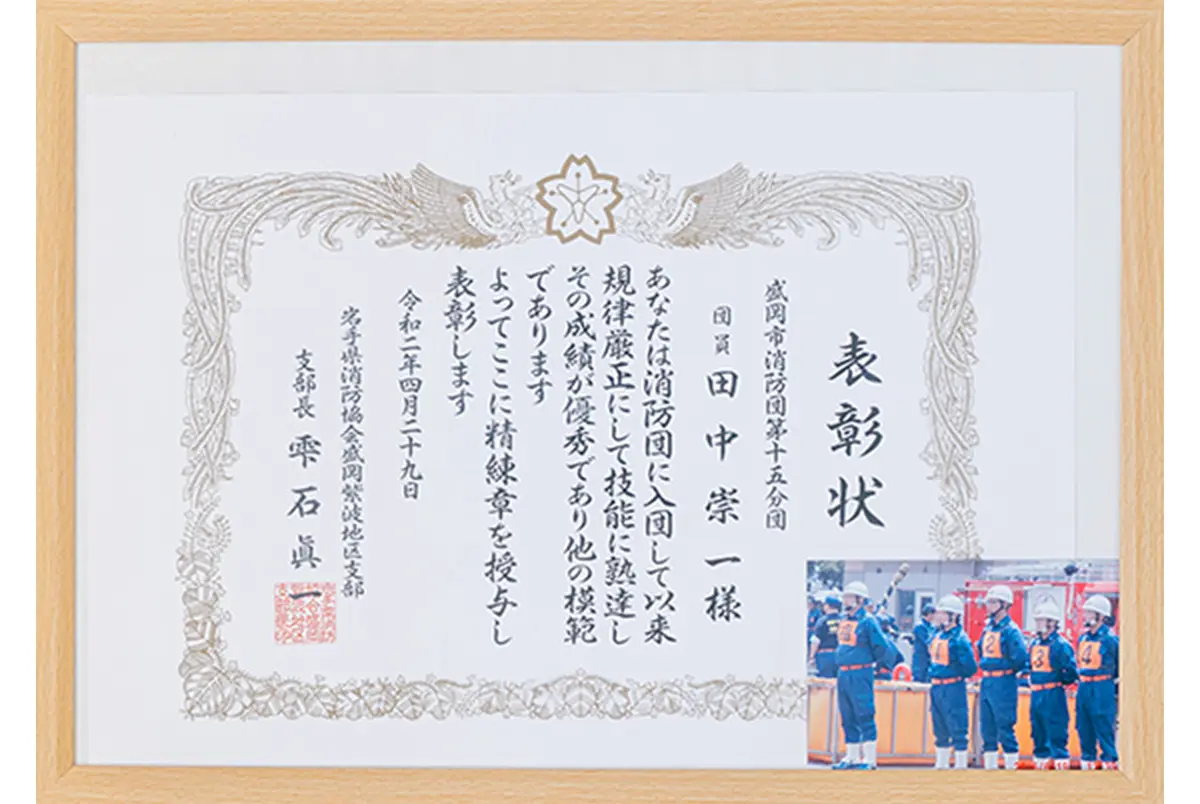 表彰状
盛岡市消防団第十五分団
団員 田中崇一様
あなたは消防団に入団して以来
規律厳正にして技能に熟達し
その成績が優秀であり他の模範
であります
よってここに精練章を授与し
表彰します
令和二年四月二十九日
岩手県消防協会盛岡紫波地区支部
支部長 雫石眞一
1
2
3
4